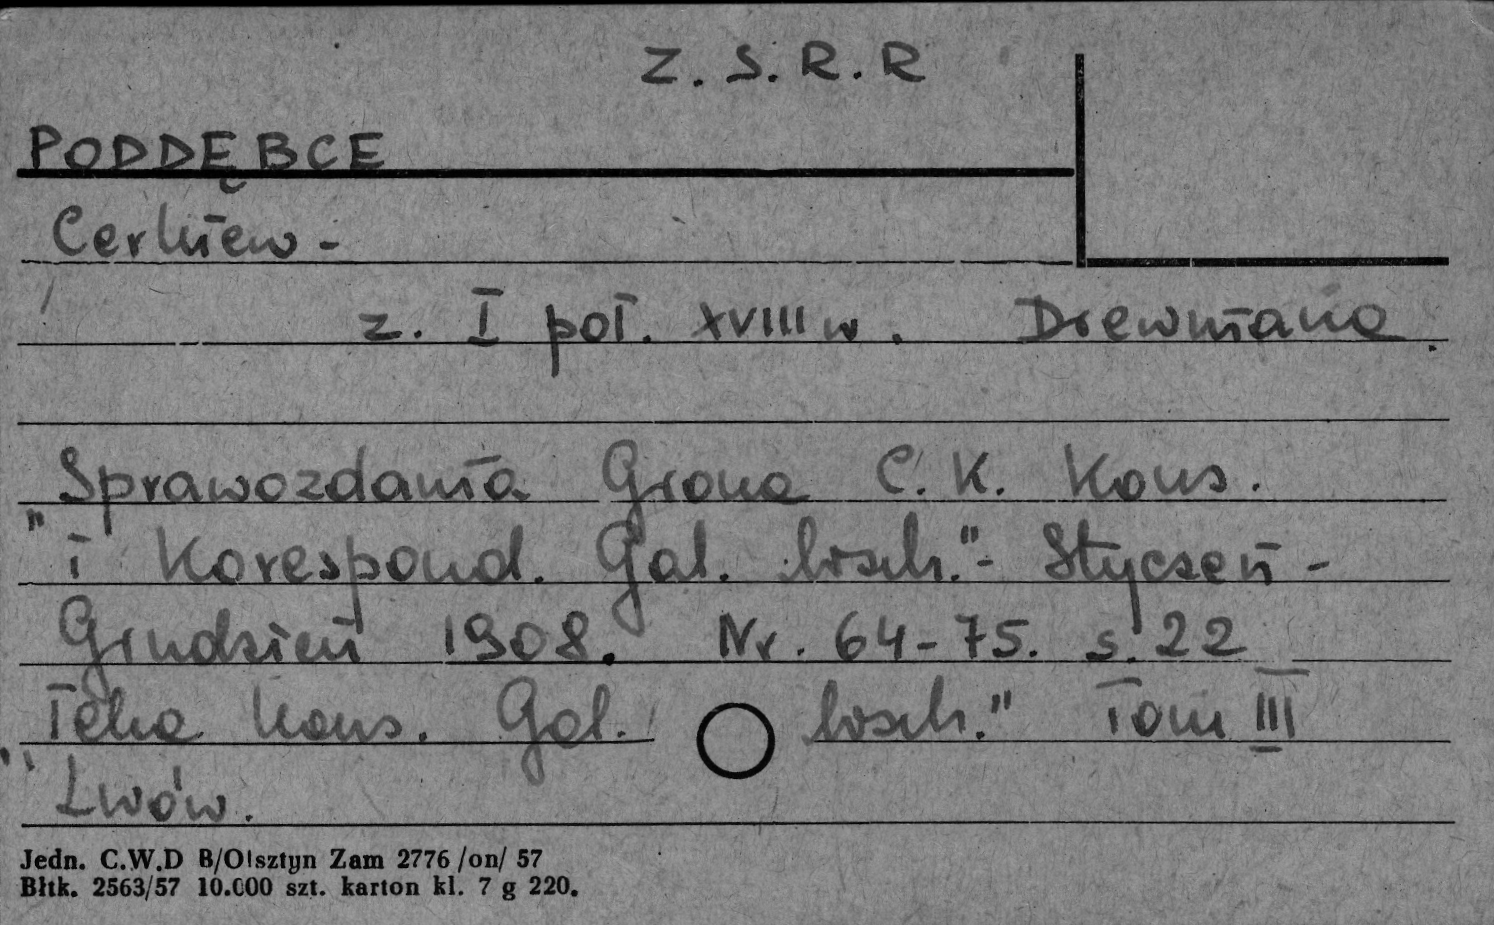 Z. S. R. R
PODDĘBCE
Cerkiew -
z. I poł. XVIII w. Drewniana.
"Sprawozdania Grona C. K. Kons.
i Korespond. Gal. Wsch." - Styczeń -
Grudzień 1908. Nr. 64-75. s. 22
"Teka Kons. Gal. Wsch." Tom III
Lwów.
Jedn. C.W.D B/Olsztyn Zam 2776 /on/ 57
Błtk. 2563/57 10.000 szt. karton kl. 7 g 220.